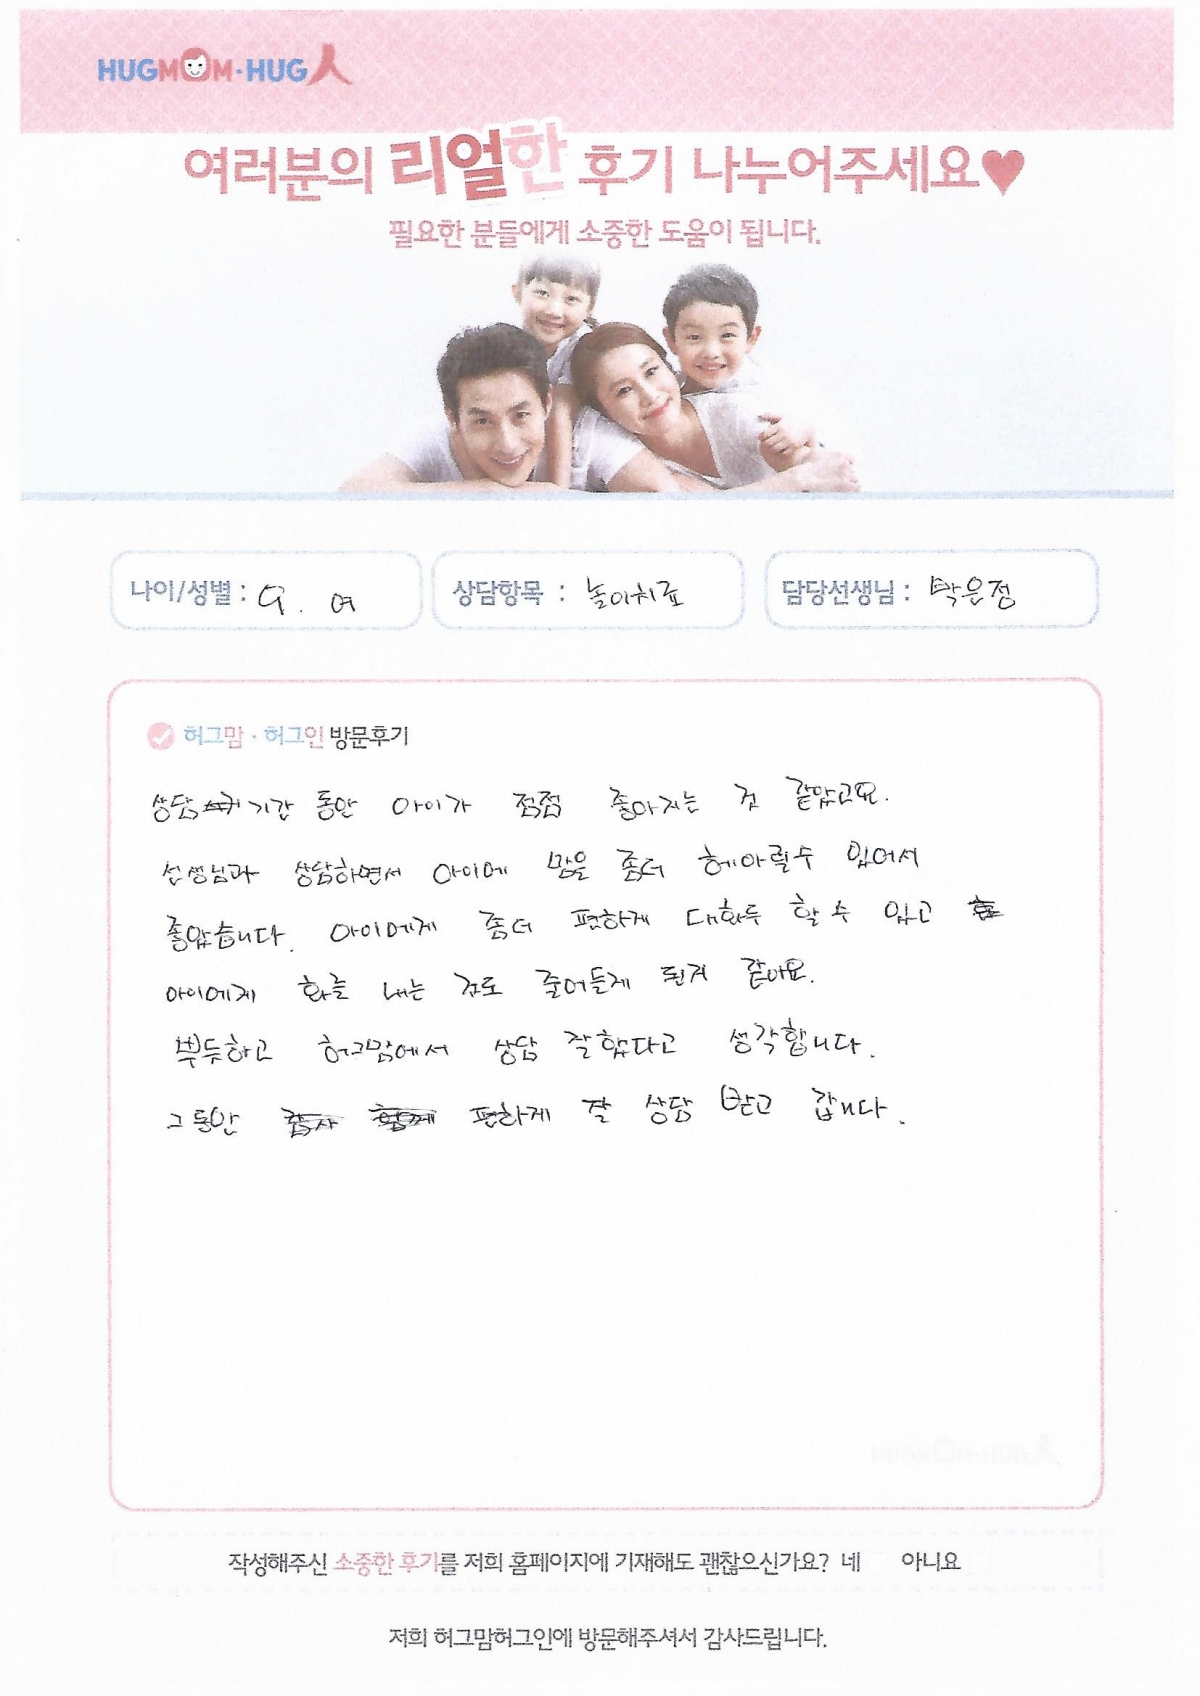 HUGMOM·HUG人
여러분의 리얼한 후기 나누어주세요♥
필요한 분들에게 소중한 도움이 됩니다.
나이/성별 : 9. 여 상담항목 : 놀이치료 담당선생님 : 박은정
허그맘·허그인 방문후기
상담 기간 동안 아이가 점점 좋아지는 것 같았고요.
선생님과 상담하면서 아이에 맘을 좀더 헤아릴수 있어서
좋았습니다. 아이에게 좀더 편하게 대화두 할수 있고
아이에게 화를 내는 것도 줄어들게 된거 같아요.
뿌듯하고 허그맘에서 상담 잘했다고 생각합니다.
그동안 편하게 잘 상담 받고 갑니다.
작성해주신 소중한 후기를 저희 홈페이지에 기재해도 괜찮으신가요? 네 아니요
저희 허그맘허그인에 방문해주셔서 감사드립니다.